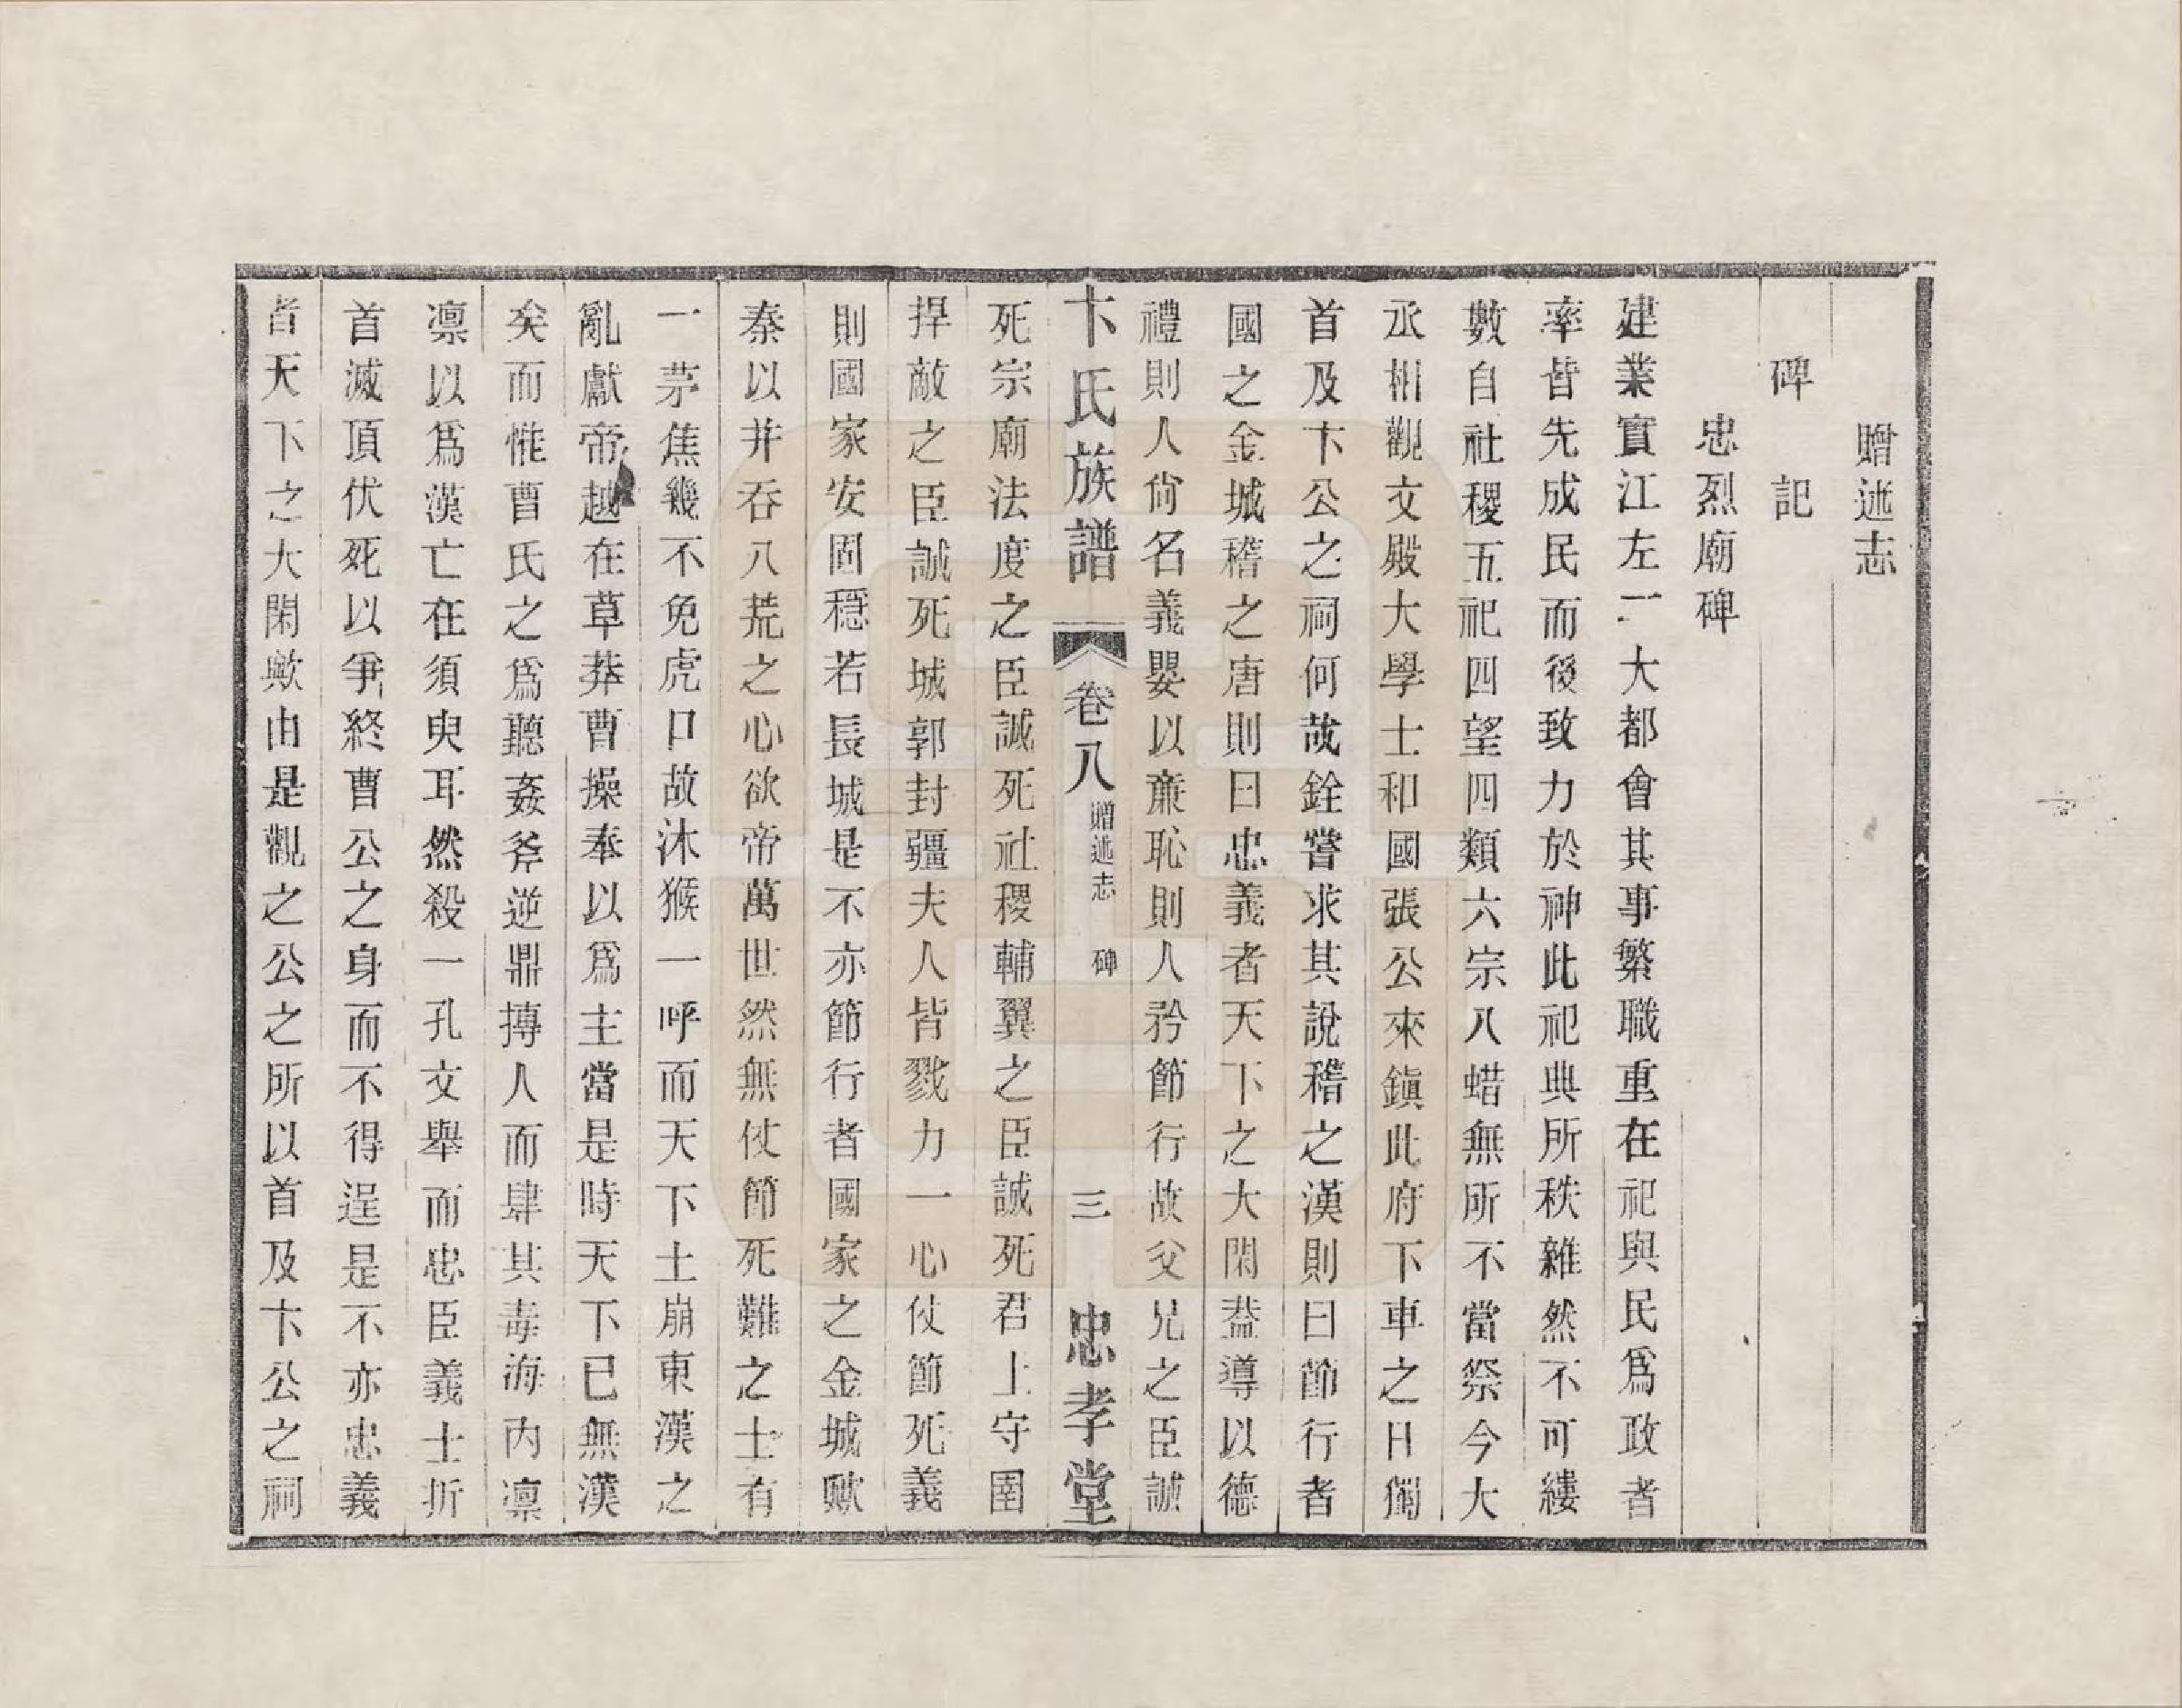 贈述志
碑記
忠烈廟碑
建業實江左一大都會其事繁職重在祀與民爲政者
率皆先成民而後致力於神此祀典所秩雜然不可縷
數自社稷五祀四望四類六宗八蜡無所不當祭今大
丞相觀文殿大學士和國張公來鎭此府下車之日獨
首及卞公之祠何哉銓嘗求其說稽之漢則曰節行者
國之金城稽之唐則曰忠義者天下之大閑葢導以德
禮則人尙名義嬰以廉恥則人矜節行故父兄之臣誠
卞氏族譜 卷八 贈述志 碑 三 忠孝堂
死宗廟法度之臣誠死社稷輔翼之臣誠死君上守圉
捍敵之臣誠死城郭封疆夫人皆戮力一心仗節死義
則國家安固穩若長城是不亦節行者國家之金城歟
秦以并吞八荒之心欲帝萬世然無仗節死難之士有
一茅焦幾不免虎口故沐猴一呼而天下土崩東漢之
亂獻帝越在草莽曹操奉以爲主當是時天下已無漢
矣而惟曹氏之爲聽姦斧逆鼎摶人而肆其毒海内凛
凛以爲漢亡在須臾耳然殺一孔文舉而忠臣義士折
首滅頂伏死以爭終曹公之身而不得逞是不亦忠義
者天下之大閑歟由是觀之公之所以首及卞公之祠